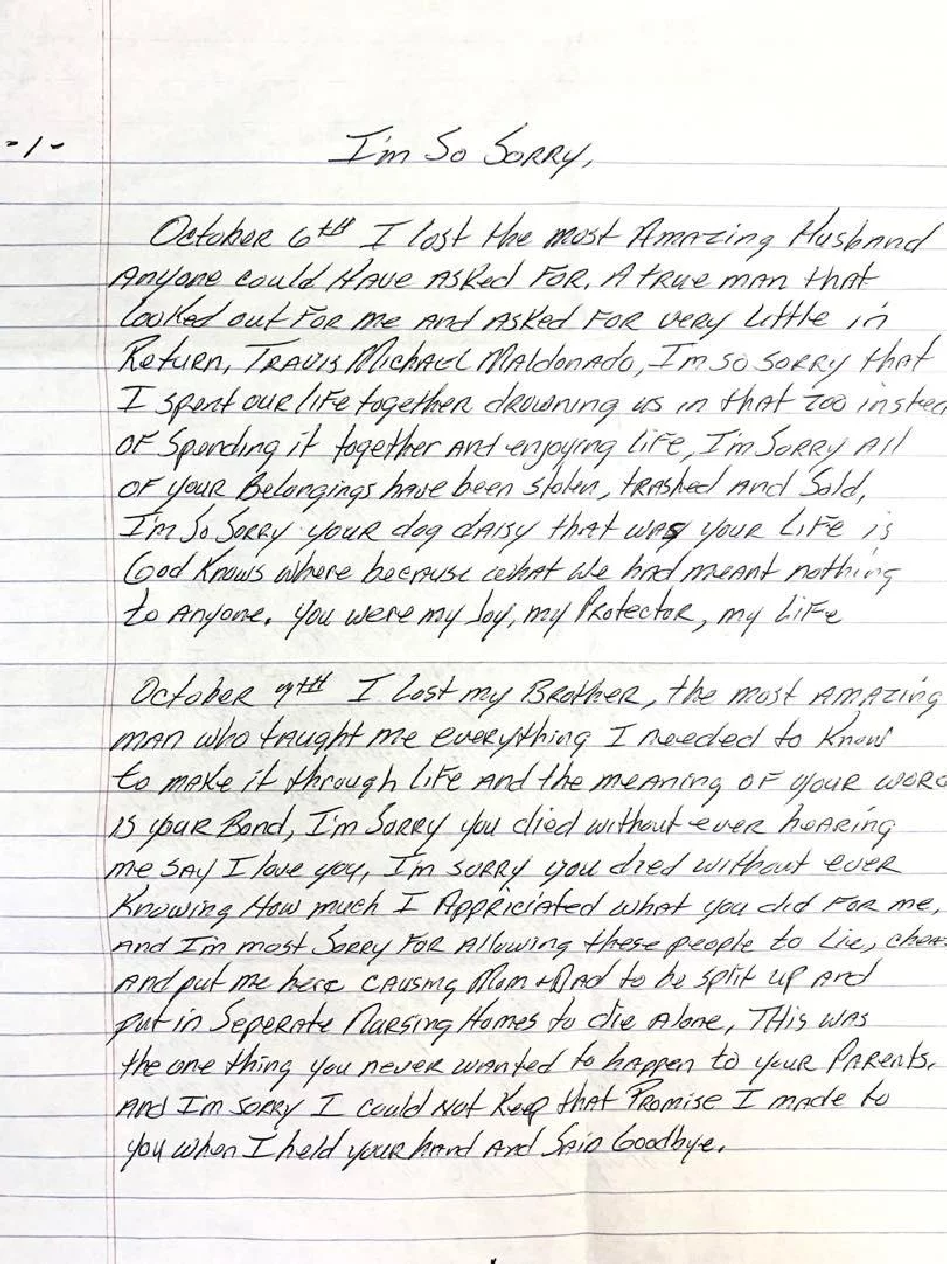 -1-
I'm So Sorry,
October 6th I lost the most Amazing Husband
Anyone could Have Asked For. A true man that
looked out For me And Asked For very little in
Return, Travis Michael Maldonado, I'm so sorry that
I spent our life together drowning us in that zoo instea
of Spending it together And enjoying life, I'm Sorry All
of your Belongings have been stolen, trashed And Sold,
I'm So Sorry your dog daisy that was your Life is
God Knows where because what we had meant nothing
to Anyone. You were my Joy, my Protector, my Life
October 7th I Lost my Brother, the most Amazing
man who taught me everything I needed to Know
to make it through life And the meaning of your word
is your Bond, I'm Sorry you died without ever hearing
me say I love you, I'm sorry you died without ever
Knowing How much I Appriciated what you did For me,
And I'm most Sorry For Allowing these people to Lie, chea
And put me here causing Mom + Dad to be split up And
put in Seperate Nursing Homes to die Alone, This was
the one thing you never wanted to happen to your Parents.
And I'm sorry I could not Keep that Promise I made to
you when I held your hand And Said Goodbye.